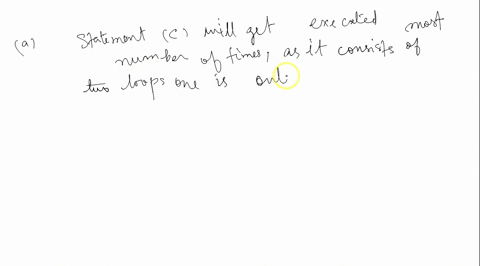 (a) Statement (C) will get executed most
number of times, as it consists of
two loops one is out